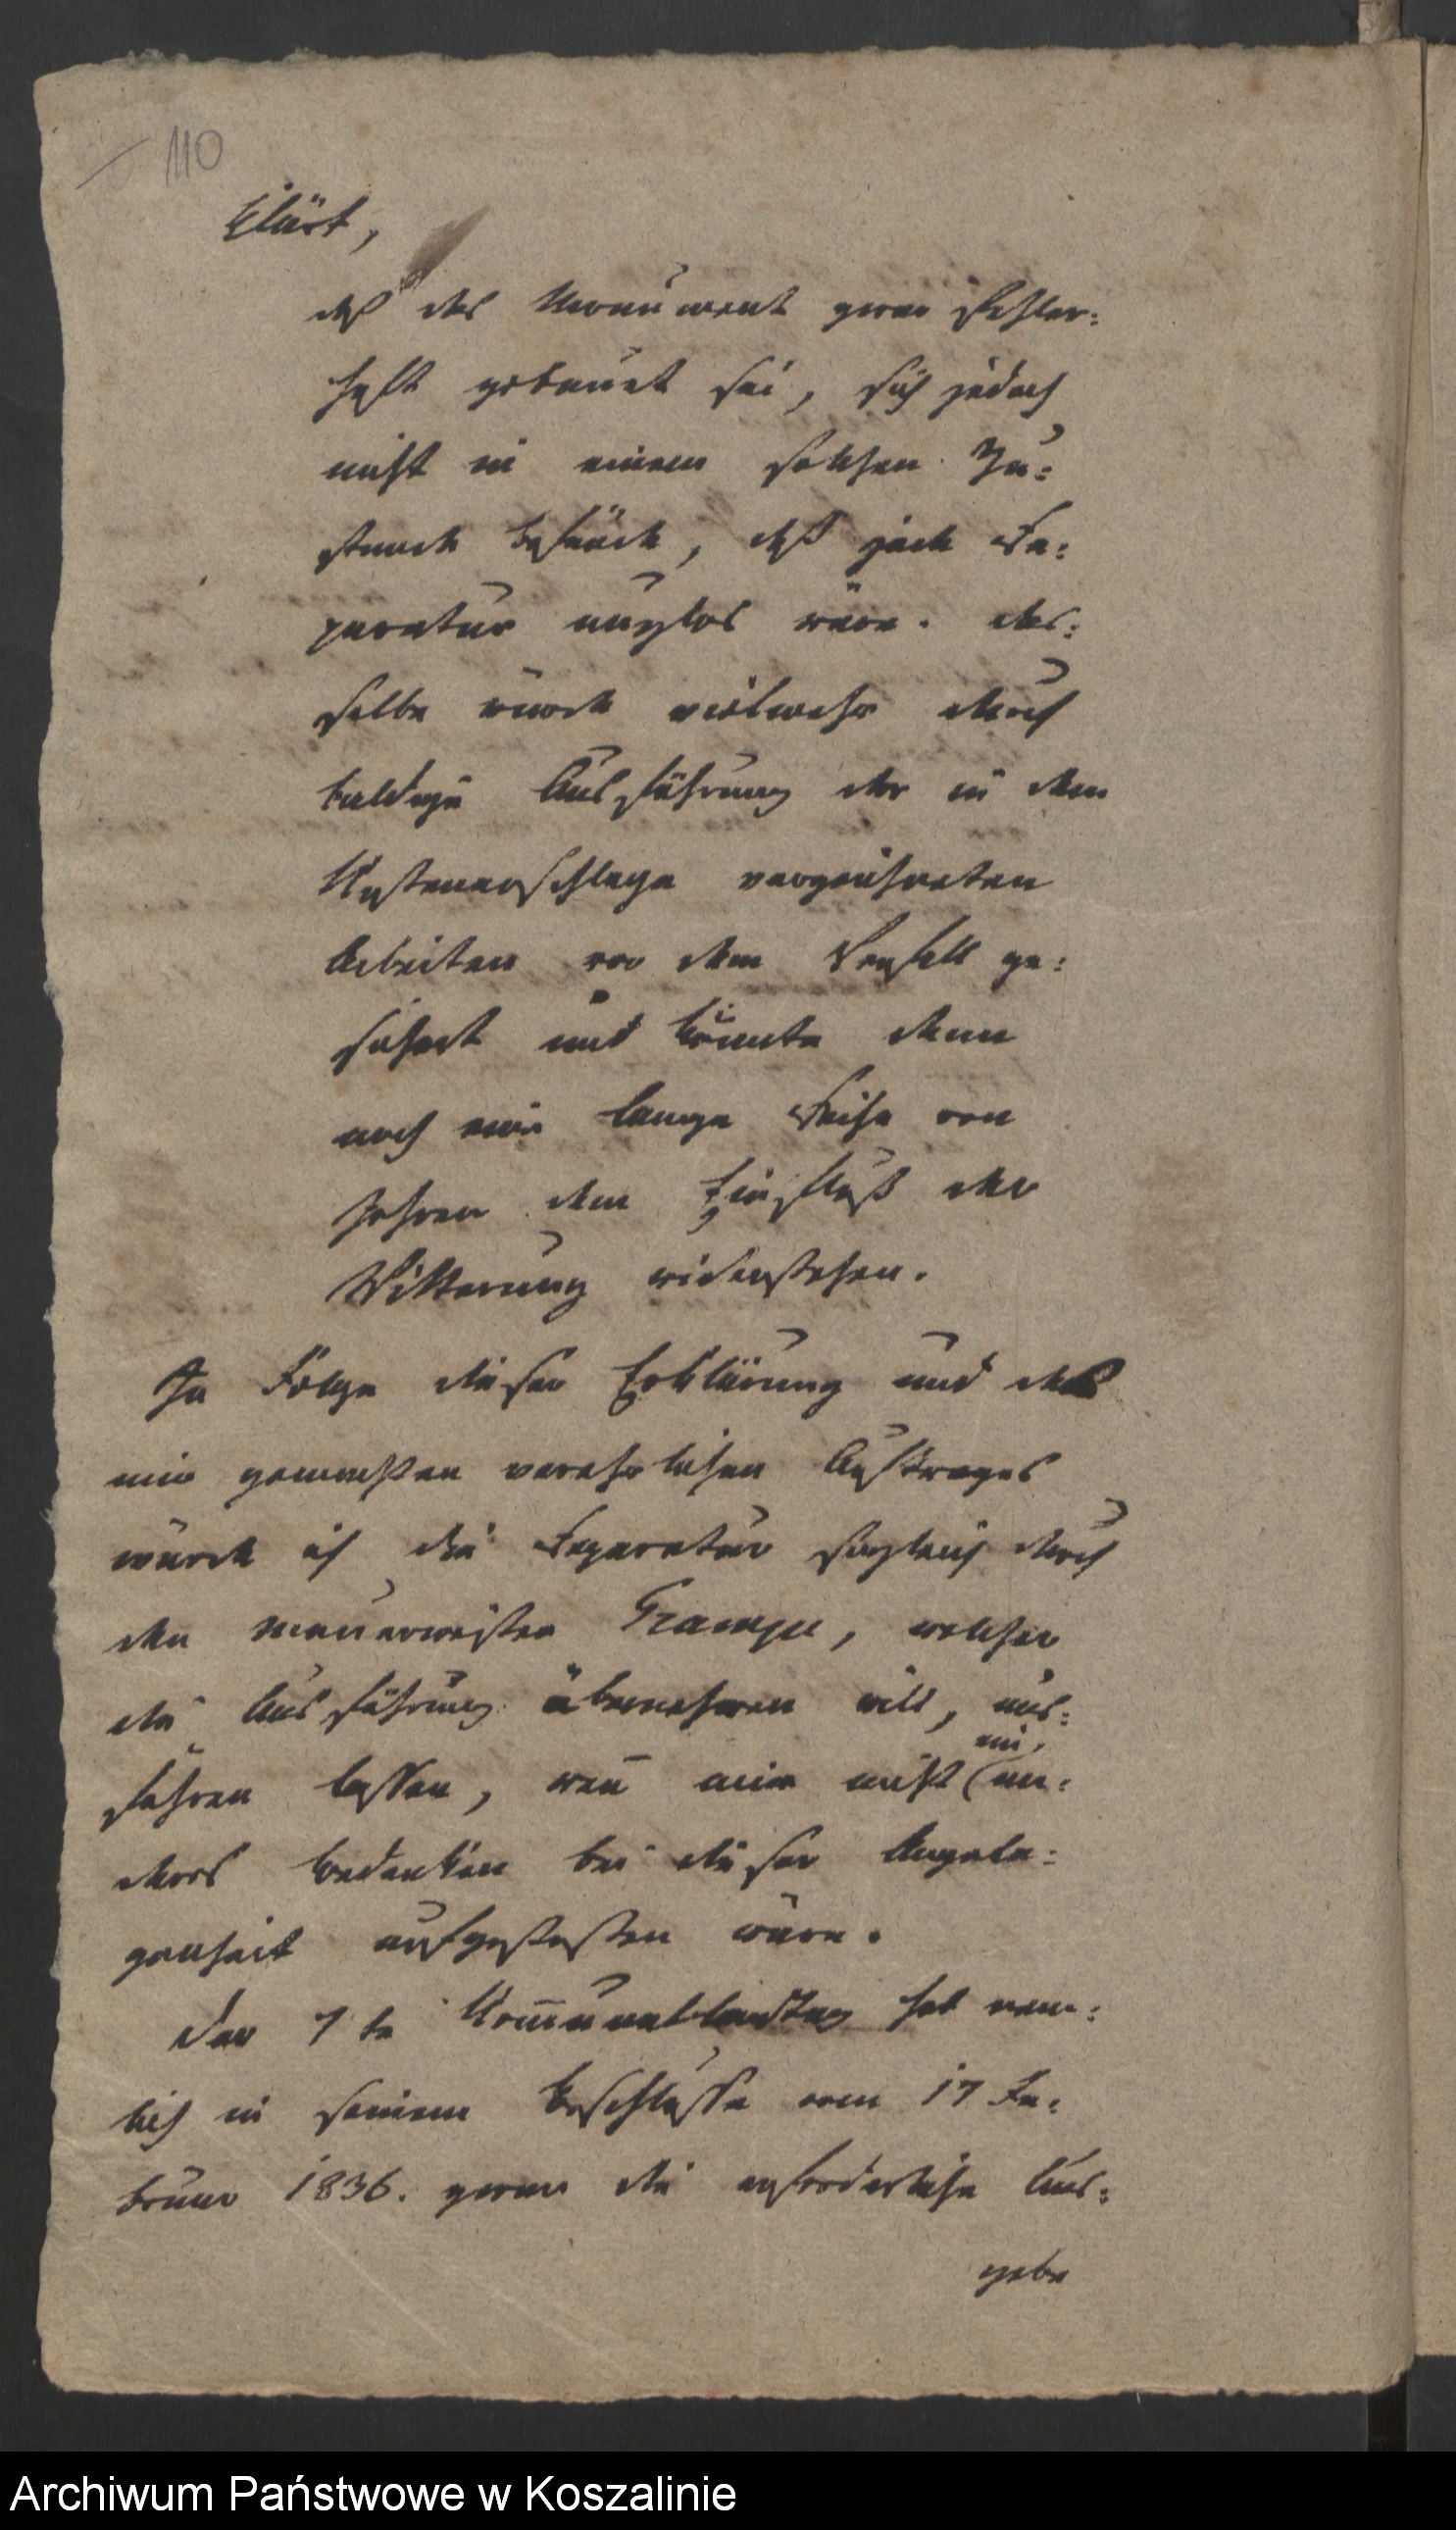 110
klärt,
daß das Monument zwar fehler:
haft gebauet sei, sich jedoch
nicht in einem solchen Zu:
stande befände, daß jede Re:
paratur nutzlos wäre. das:
selbe würde vielmehr durch
baldige Ausführung der in dem
Kostenanschlage verzeichneten
Arbeiten vor dem Verfall ge:
sichert und könnte dann
noch eine lange Reihe von
Jahren dem Einfluß der
Witterung widerstehen.
In Folge dieser Erklärung und des
mir gewordenen verehrlichen Auftrages
würde ich die Reparatur sogleich durch
den Mauermeister Trampe, welcher
die Ausführung übernehmen will, aus:
führen lassen, wen̄ mir nicht (ein
an:
deres Bedenken bei dieser Angele:
genheit aufgestoßen wäre.
Der 7te Kom̄unallandtag hat nem:
lich in seinem Beschlusse vom 17 Fe:
bruar 1836. zwar die erforderliche Aus:
gabe
Archiwum Państwowe w Koszalinie